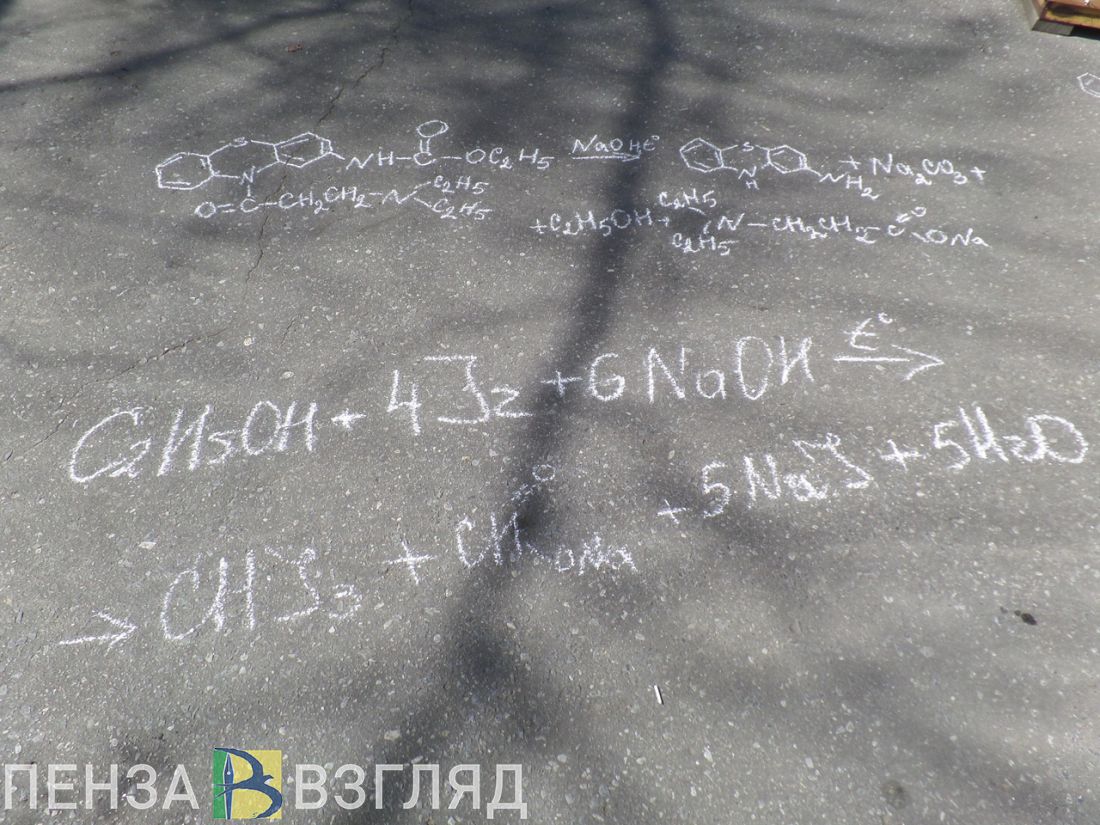 NH—C—OC₂H₅ NaOH, t° → NH₂ + Na₂CO₃ +
O=C—CH₂CH₂—N C₂H₅ C₂H₅
+ C₂H₅OH + C₂H₅ C₂H₅ N—CH₂CH₂—C=O ONa
C₂H₅OH + 4J₂ + 6NaOH t° →
→ CHJ₃ + CH=O ONa + 5NaJ + 5H₂O
ПЕНЗА ВЗГЛЯД